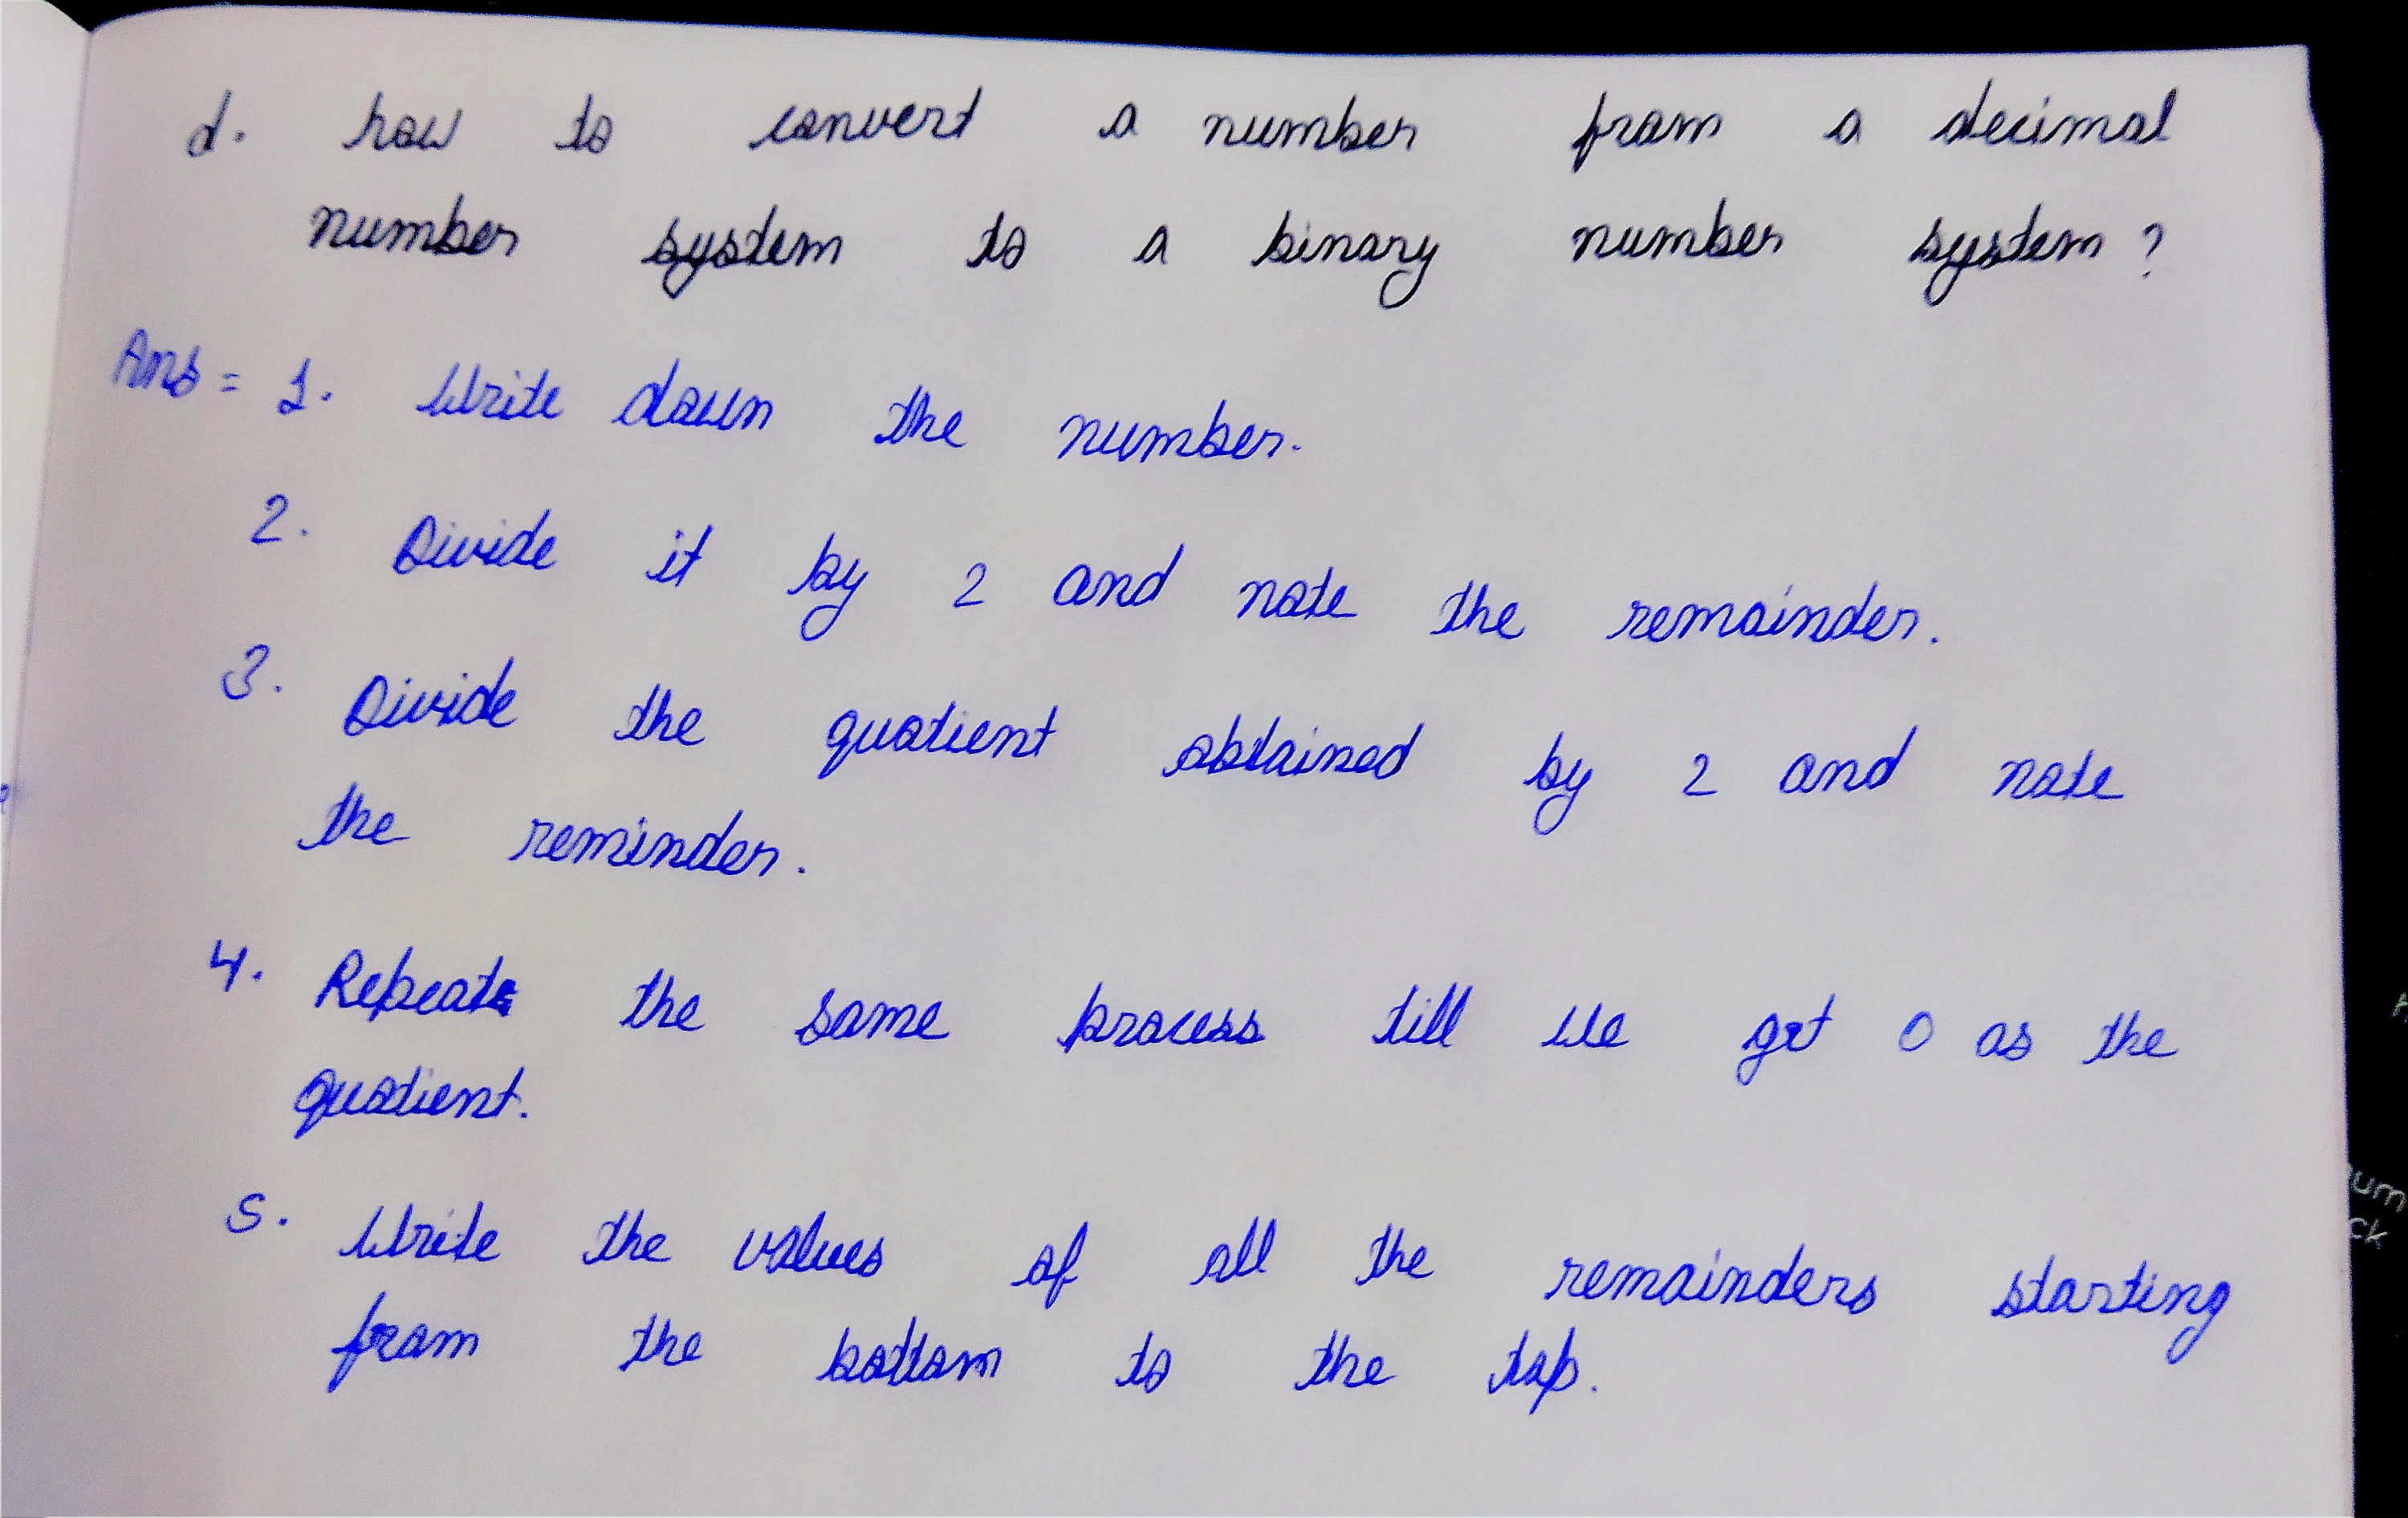 d. how to convert a number from a decimal
number system to a binary number system ?
Ans = 1. Write down the number.
2. Divide it by 2 and note the remainder.
3. Divide the quotient obtained by 2 and note
the reminder.
4. Repeat the same process till we got 0 as the
quotient.
5. Write the values of all the remainders starting
from the bottom to the top.
um
ck